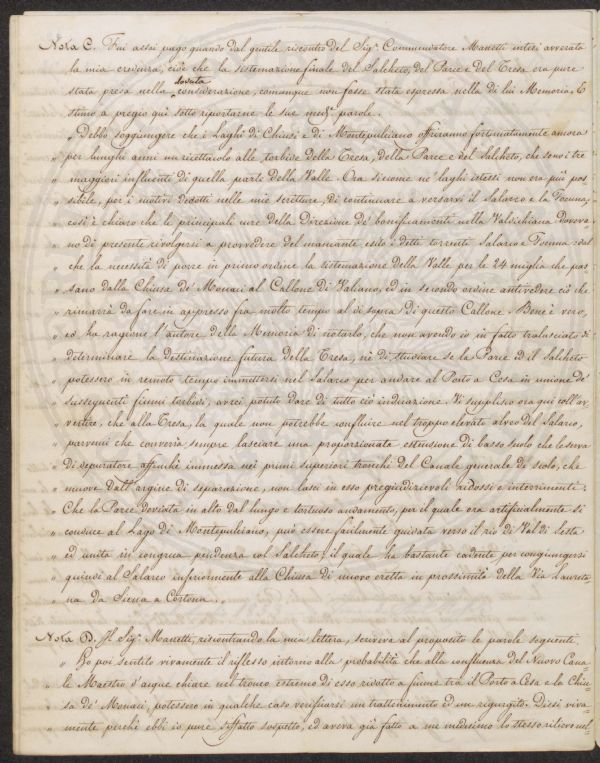 Nota C. Fui assai pago quando dal gentile riscontro del Sig.r Commendatore Manetti intesi avverata
la mia credenza, cioè che la sistemazione finale del Salcheto, del Parce e del Tresa era pure
stata presa nella dovuta considerazione, comunque non fosse stata espressa nella di lui Memoria. E
stimo a pregio qui sotto riportarne le sue med.e parole.
" Debbo soggiungere che i Laghi di Chiusi e di Montepulciano offriranno fortunatamente ancora
" per lunghi anni un ricettacolo alle torbide della Tresa, della Parce e del Salcheto, che sono i tre
" maggiori influenti di quella parte della Valle. Ora siccome ne' laghi istessi non era più pos=
" sibile, per i motivi dedotti nelle mie scritture, di continuare a versarvi il Salarco e la Foenna,
" così è chiaro che le principali cure della Direzione de' bonificamenti nella Valdichiana doveva=
" no di presente rivolgersi a provvedere del mancante esito i detti torrenti Salarco e Foenna: dal
" che la necessità di porre in primo ordine la sistemazione della Valle per le 24 miglia che pas=
" sano dalla Chiusa de' Monaci al Callone di Valiano, ed in secondo ordine antivedere ciò che
" rimarrà da fare in appresso fra molto tempo al di sopra di questo Callone. Bene è vero,
" ed ha ragione l'autore della Memoria di notarlo, che non avendo io in fatto tralasciato di
" determinare la destinazione futura della Tresa, nè di studiare se la Parce ed il Salcheto
" potessero in remoto tempo immettersi nel Salarco per andare al Porto a Cesa in unione de'
" susseguenti fiumi torbidi, avrei potuto dare di tutto ciò indicazione. Vi supplisco ora qui coll'av=
" vertire, che alla Tresa, la quale non potrebbe confluire nel troppo elevato alveo del Salarco,
" parvemi che converrà sempre lasciare una proporzionata estensione di basso suolo che le serva
" di depuratore affinchè immessa nei primi superiori tronchi del Canale generale di scolo, che
" muove dall'argine di separazione, non lasci in esso pregiudizievoli ridossi e interrimenti:
" Che la Parce deviata in alto dal lungo e tortuoso andamento, per il quale ora artificialmente si
" conduce al Lago di Montepulciano, può essere facilmente guidata verso il rio di Val di Sesta
" ed unita in congrua pendenza col Salcheto, il quale ha bastante cadente per congiungersi
" quindi al Salarco inferiormente alla Chiusa di nuovo eretta in prossimità della Via Laureta=
" na da Siena a Cortona. "
Nota D. Il Sig.r Manetti, riscontrando la mia lettera, scriveva al proposito le parole seguenti.
" Ho poi sentito vivamente il riflesso intorno alla probabilità che alla confluenza del Nuovo Cana=
" le Maestro d'acque chiare nel tronco estremo di esso ridotto a fiume tra il Porto a Cesa e la Chiu=
" sa de' Monaci, potessero in qualche caso verificarsi un trattenimento ed un rigurgito. Dissi viva=
" mente perchè ebbi io pure siffatto sospetto, ed aveva già fatto a me medesimo lo stesso rilievo nel=